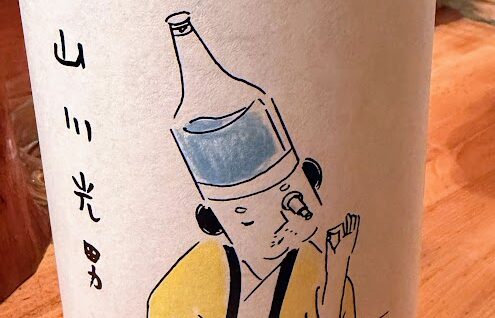 山川光男